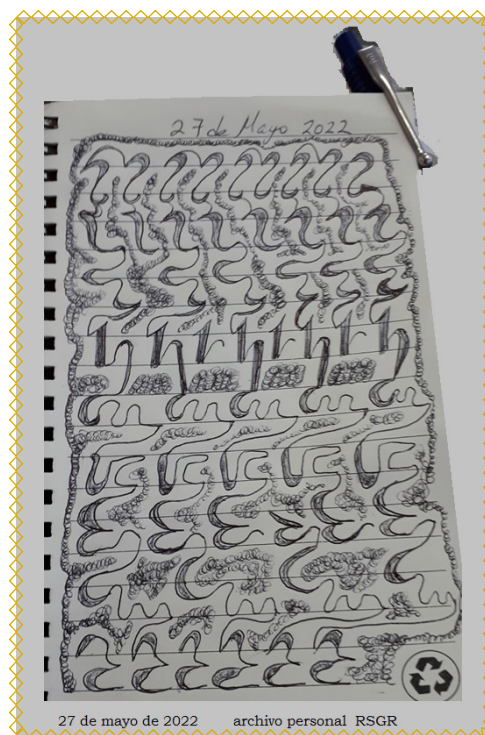 27 de Mayo 2022
27 de mayo de 2022 archivo personal RSGR